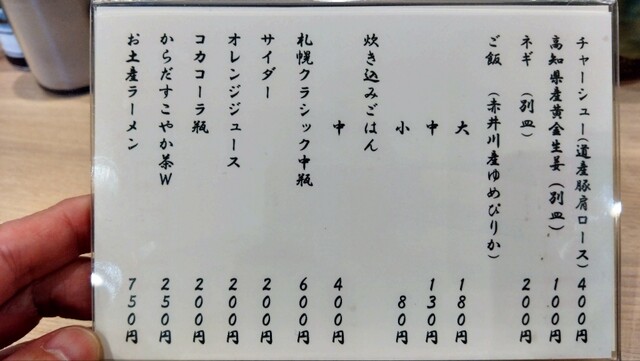 チャーシュー(道産豚肩ロース)400円
高知県産黄金生姜(別皿)100円
ネギ (別皿) 200円
ご飯 (赤井川産ゆめぴりか)
大 180円
中 130円
小 80円
炊き込みごはん
中 400円
札幌クラシック中瓶 600円
サイダー 200円
オレンジジュース 200円
コカコーラ瓶 200円
からだすこやか茶W 250円
お土産ラーメン 750円